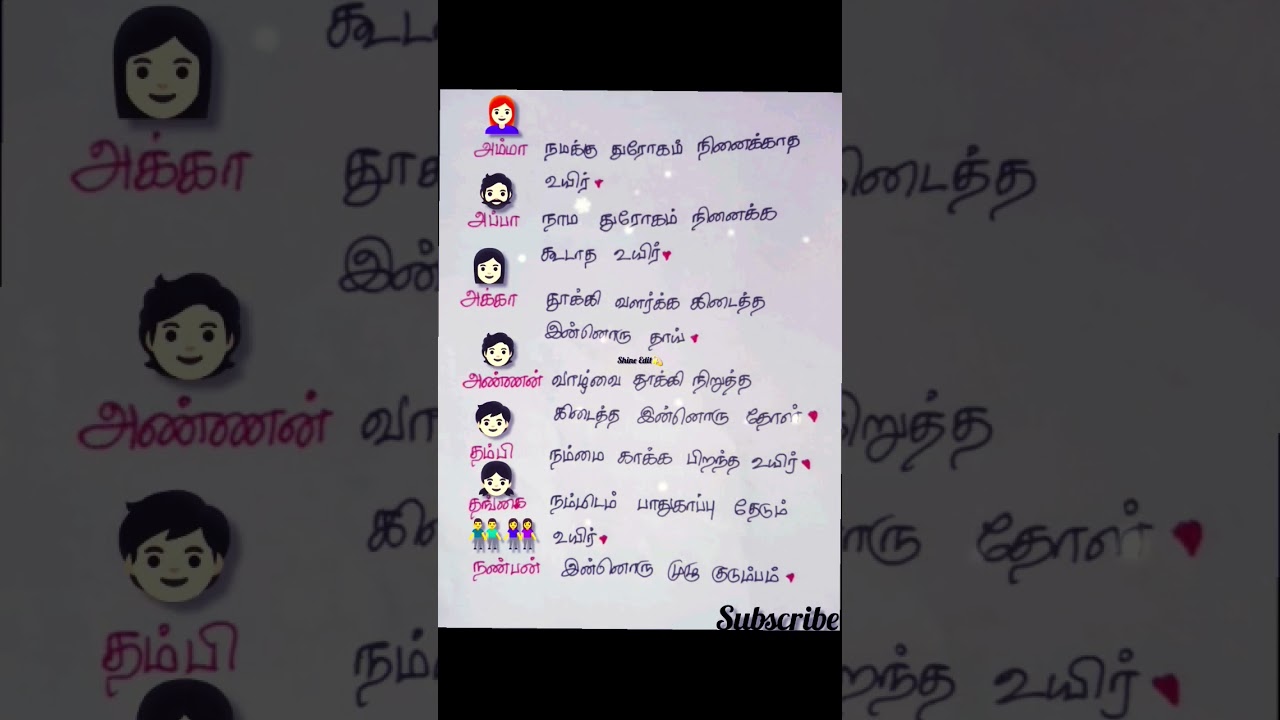 அம்மா நமக்கு துரோகம் நினைக்காத
உயிர்
அப்பா நாம துரோகம் நினைக்க
கூடாத உயிர்
அக்கா தூக்கி வளர்க்க கிடைத்த
இன்னொரு தாய்
Shine Edit
அண்ணன் வாழ்வை தூக்கி நிறுத்த
கிடைத்த இன்னொரு தோள்
தம்பி நம்மை காக்க பிறந்த உயிர்
தங்கை நம்மிடம் பாதுகாப்பு தேடும்
உயிர்
நண்பன் இன்னொரு முழு குடும்பம்
Subscribe